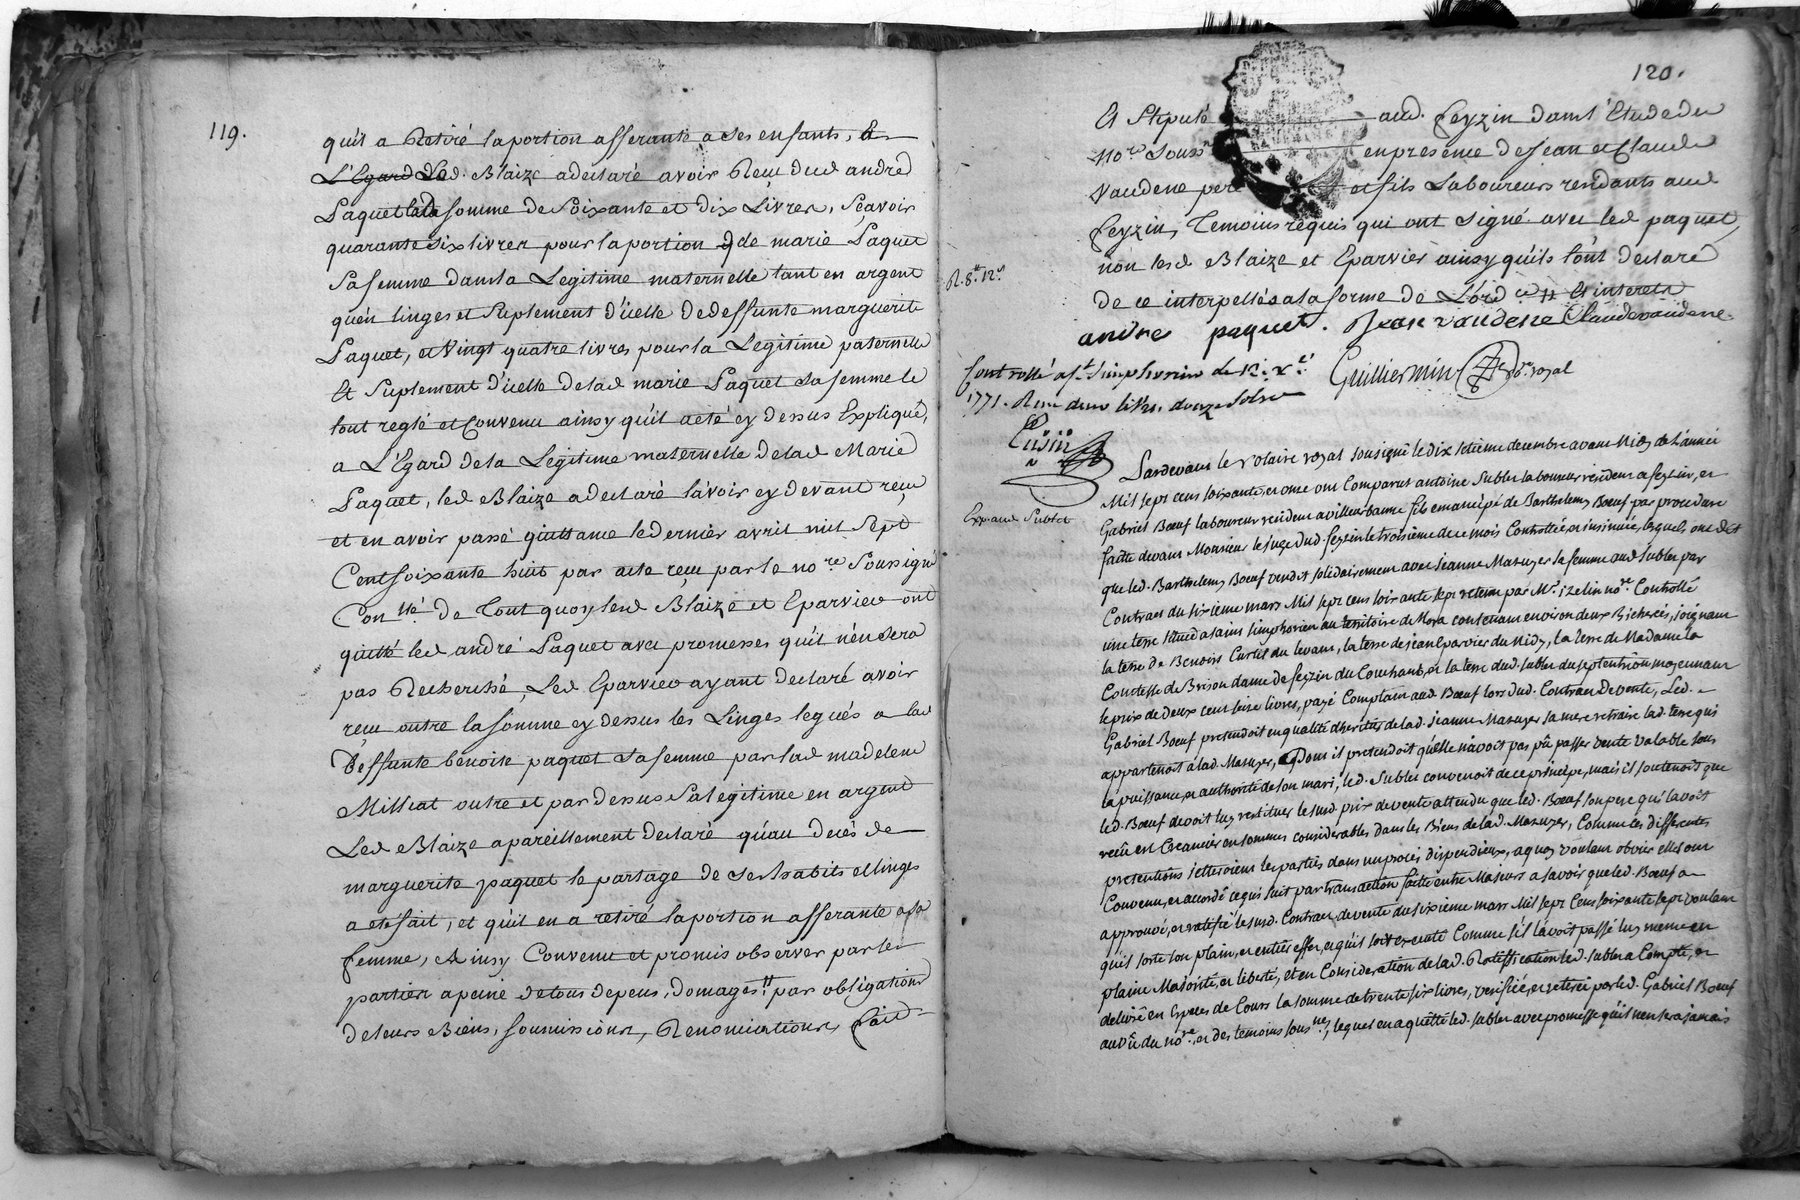 119.
qu'il a Retiré la portion afferante a ses enfans, Et
L'Egard Led. Blaize a declaré avoir Reçu dud andré
Paquet la somme de soixante et dix Livres, sçavoir
quarante six livres pour la portion de marie Paquet
sa femme dans la Legitime maternelle tant en argent
qu'en linges et suplement d'icelle de deffunte marguerite
Paquet, et vingt quatre livres pour la Legitime paternelle
et suplement d'icelle de lad marie Paquet sa femme le
tout reglé et Convenu ainsy qu'il a eté cy dessus Expliqué,
a L'Egard de la Legitime maternelle de lad Marie
Paquet, led Blaize a declaré l'avoir cy devant reçue
et en avoir passé quittance le dernier avril mil sept
Cent soixante huit par acte reçu par le no.re soussigné
Con.llé De Tout quoy lesd Blaize et Eparvier ont
quitté led andré Paquet avec promesses qu'il n'en sera
pas Recherché, Led Eparvier ayant declaré avoir
reçu outre la somme cy dessus les Linges legués a lad
Deffunte benoite paquet sa femme par lad madelene
Milliat outre et par dessus sa legitime en argent
Led Blaize apareillement declaré qu'au decés de
marguerite paquet le partage de ses habits et linges
a eté fait, et qu'il en a retiré la portion afferante a sa
femme, Ainsy Convenu et promis observer par les
parties a peine de tous depens, domages par obligations
de leurs Biens, soumissions, Renonciations, fait
120.
Et stipulé aud. feyzin dans l'Etude du
no.re souss.é en presence de jean et Claude
vaudene pere et fils Laboureurs residants aud
feyzin, Temoins requis qui ont signé avec led paquet,
non lesd Blaize et Eparvier ainsy qu'ils l'ont declaré
de ce interpellés a la forme de L'ord.ce et interets
andre paquet. Jean vaudene Claude vaudene
R. 8.tt 12.s
Guilliermin no.re royal
Controllé a s.t simphorien le
1771. Reçu livres douze sols
Cusin
Exp. aud Sublet
Pardevant le Notaire royal soussigné le dix setième decembre avant Midy de l'année
Mil sept cens soixante, et onze ont Comparus antoine Sublet laboureur resident a feyzin, et
Gabriel Bœuf laboureur resident a villeurbanne fils emancipé de Barthelemy Bœuf par procedure
faitte devant Monsieur le juge dud feyzin le troisième de ce mois Controllée, et insinuée, lesquels ont dit
que led. Barthelemy Bœuf vendit solidairement avec jeanne Mazuyer sa femme aud sublet par
Contract du sixième mars Mil sept cens soixante sept retenu par M.e izelin no.re Controllé
une terre située a saint simphorien au territoire de Mora contenant environ deux Bicherées, joignant
la terre de Benoist Curtil du levant, la terre de jean Eparvier du Midy, la terre de Madame la
Comtesse de Brison dame de feyzin du Couchant, et la terre dud. sublet du septentrion moyennant
le prix de deux cent seize livres, payé Comptant aud. Bœuf lors dud. Contract de vente, Led.
Gabriel Bœuf pretendoit en qualité d'heritier de lad. jeanne Mazuyer sa mere retraire lad. terre qui
appartenoit a lad. Mazuyer, Dont il pretendoit qu'elle n'avoit pas pû passer vente valable sous
la puissance, et authorité de son mari, led. Sublet convenoit de ce principe, mais il soutenoit que
led. Bœuf devoit luy restituer le sud. prix de vente attendu que led. Bœuf son pere qui l'avoit
reçû est Creancier en sommes considerables dans les Biens de lad. Mazuyer, Comme ces differentes
pretentions jetteroient les parties dans un procés dispendieux, a quoy voulant obvier elles ont
Convenu, et accordé ce qui suit par transaction faitte entre Majeurs a savoir que led. Bœuf a
approuvé, et ratifié le sud. Contract de vente du sixième mars Mil sept Cens soixante sept voulant
qu'il sorte son plain, et entier effet, et qu'il soit executé Comme s'il l'avoit passé luy meme en
plaine Majorité, et liberté, et en Consideration de lad. Ratiffication led. sublet a Compté, et
delivré en Especes de Cours la somme de trente six livres, verifiée, et retirée par led. Gabriel Bœuf
au vû du no.re, et des temoins souss.nés, lequel en a quitté led. sublet avec promesse qu'il n'en sera jamais